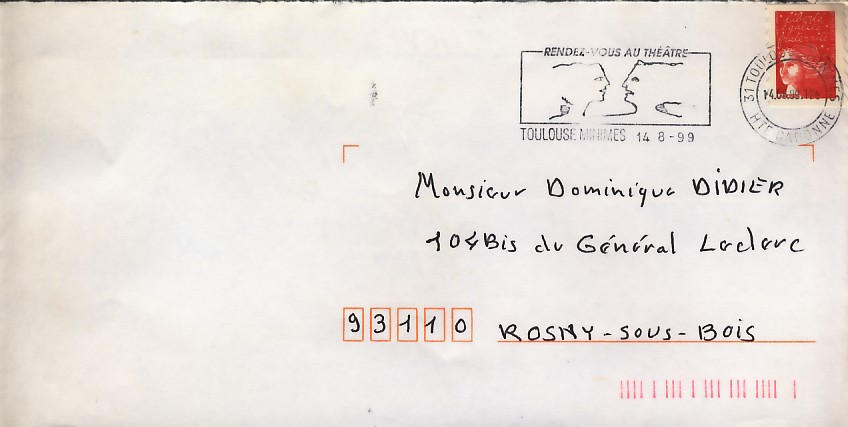 RENDEZ-VOUS AU THÉÂTRE
TOULOUSE MINIMES 14 8-99
Liberté
égalité
fraternité
31 TOULOUSE MINIMES
HTE GARONNE
Monsieur Dominique DIDIER
104Bis du Général Leclerc
93110 ROSNY-SOUS-BOIS